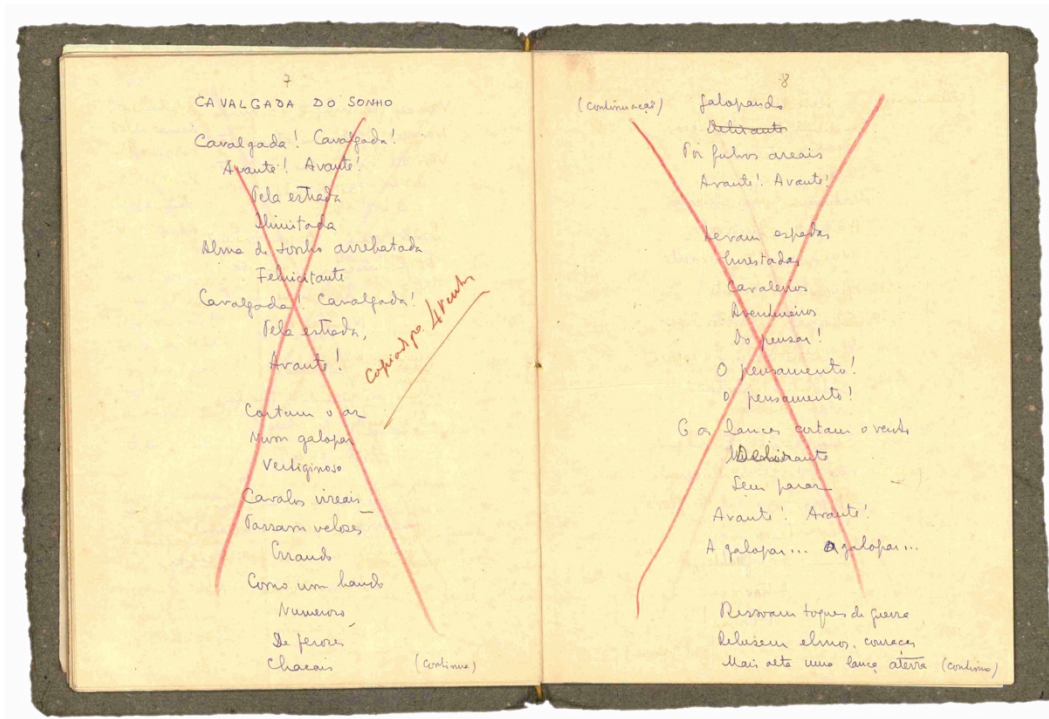 7
CAVALGADA DO SONHO
Cavalgada! Cavalgada!
Avante! Avante!
Pela estrada
Ilimitada
Alma de sonho arrebatada
Cavalgada! Cavalgada!
Pela estrada,
Avante!
Cortam o ar
Num galopar
Vertiginoso
Cavalos irreais
Passam velozes
Errando
Como um bando
Numeroso
De ferozes
Chacais
(Continua)
copiado
8
(Continuação)
galopando
Delirante
Por fulvos areais
Avante! Avante!
Levam espadas
Enristadas
Cavaleiros
Aventureiros
Do pensar!
O pensamento!
O pensamento!
E as lanças cortam o vento
Delirante
Sem parar
Avante! Avante!
A galopar... A galopar...
Ressoam toques de guerra
Reluzem elmos, couraças
Mais alto uma lança aterra (Continua)